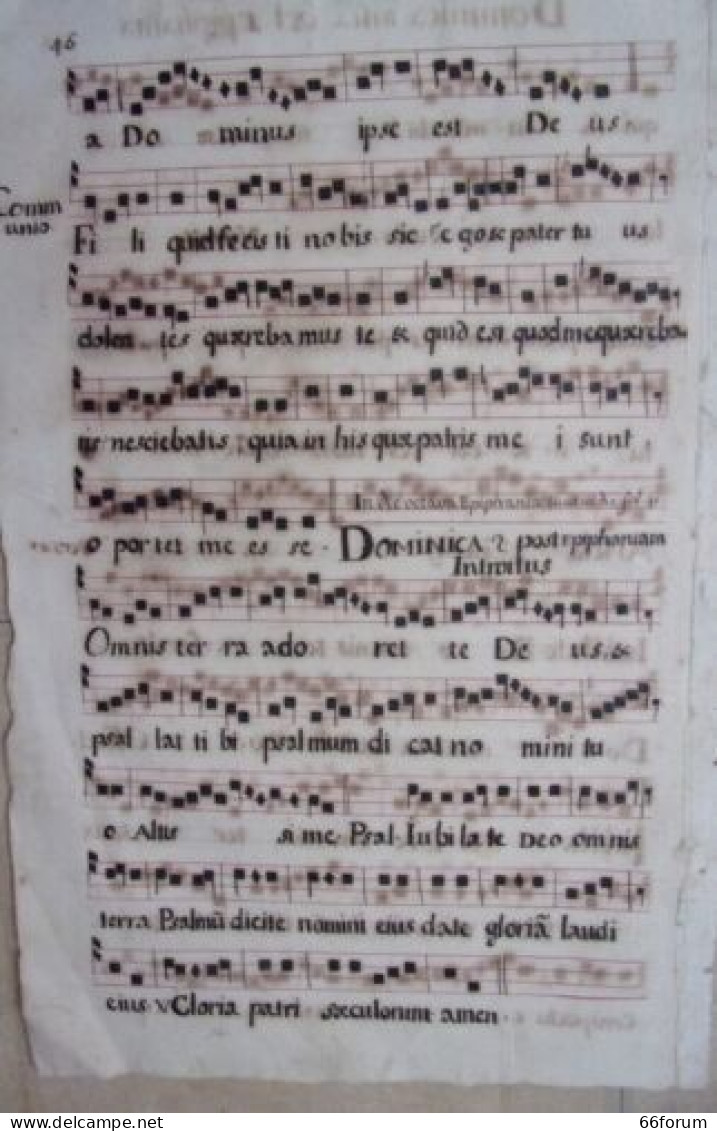 46
a Do minus ipse est De us
Comm
unio
Fi li quid fecis ti no bis sic & gose pater tu us
dolen tes quærebamus te & quid est quod me quæreba
tis nesciebatis quia in his quæ patris me i sunt
o por tet me es se. DOMINICA 2 post epiphaniam
Introitus
Omnis ter ra ado ret te De us &
psal lat ti bi psalmum di cat no mini tu
o Altis si me Psal Iu bi la te Deo omnis
terra Psalmū dicite nomini eius date gloriā laudi
eius V Gloria patri sæculorum amen.
66forum